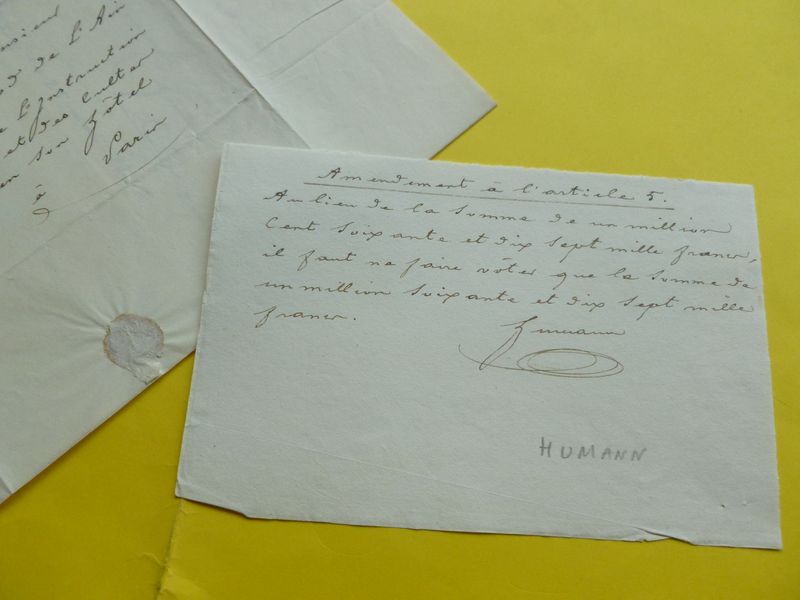 nsieur
de l'Ain
l'Instruction
et des Cultes
en son hôtel
à Paris
Amendement à l'article 5.
Au lieu de la somme de un million
Cent soixante et dix sept mille francs,
il faut ne faire vôter que la somme de
un million soixante et dix sept mille
francs.
Humann
HUMANN